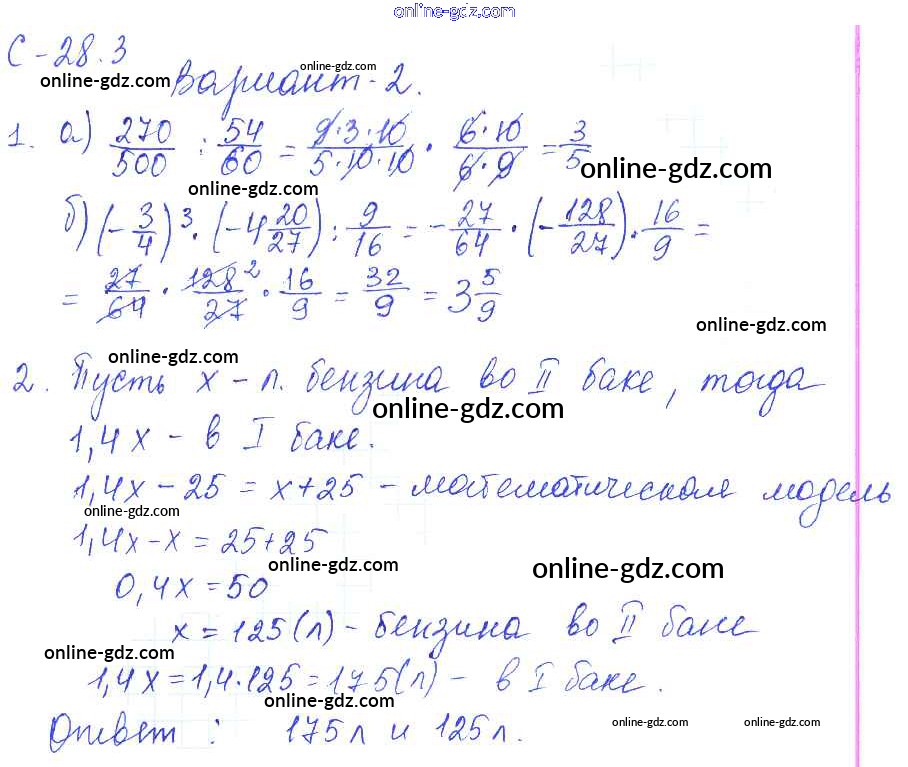 online-gdz.com
С-28.3
online-gdz.com
online-gdz.com
Вариант-2.
1. а) 270/500 : 54/60 = 9·3·10/5·10·10 · 6·10/6·9 = 3/5
online-gdz.com
online-gdz.com
б) (-3/4)³ · (-4 20/27) : 9/16 = -27/64 · (-128/27) · 16/9 =
= 27/64 · 128²/27 · 16/9 = 32/9 = 3 5/9
online-gdz.com
online-gdz.com
2. Пусть х - л. бензина во II баке, тогда
online-gdz.com
1,4х - в I баке.
1,4х - 25 = х+25 - математическая модель
online-gdz.com
1,4х-х = 25+25
online-gdz.com
online-gdz.com
0,4х = 50
х = 125 (л) - бензина во II баке
online-gdz.com
1,4х = 1,4·125 = 175 (л) - в I баке.
online-gdz.com
Ответ : 175 л и 125 л.
online-gdz.com
online-gdz.com
online-gdz.com